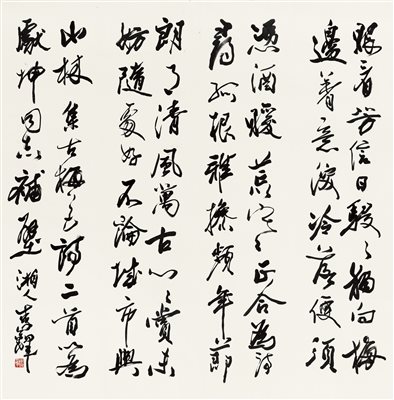 眼看芳信日駸駸獨向梅
邊著意深冷落便須
憑酒暖荒寒正合為詩
尋孤根雅操頻年節
朗月清風萬古心心賞未
妨隨處好不論城市與
山林 集古梅花詩二首以為
獻坤同志補壁 湘人